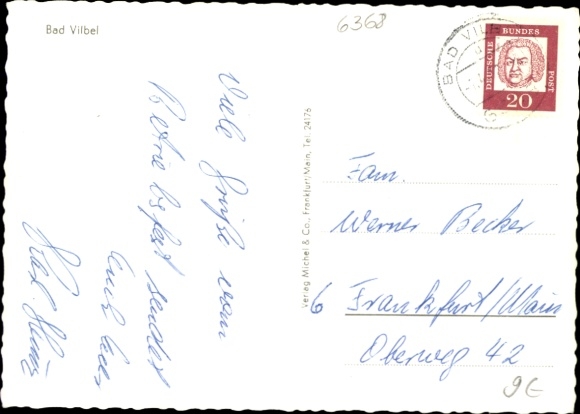 Bad Vilbel
6368
BAD VILB
DEUTSCHE BUNDESPOST
20
Viele Grüße vom
Betriebsfest sendet
Euch
Karl-Heinz
Verlag Michel & Co., Frankfurt/Main, Tel. 24176
Fam.
Werner Becker
6 Frankfurt/Main
Oberweg 42
9€